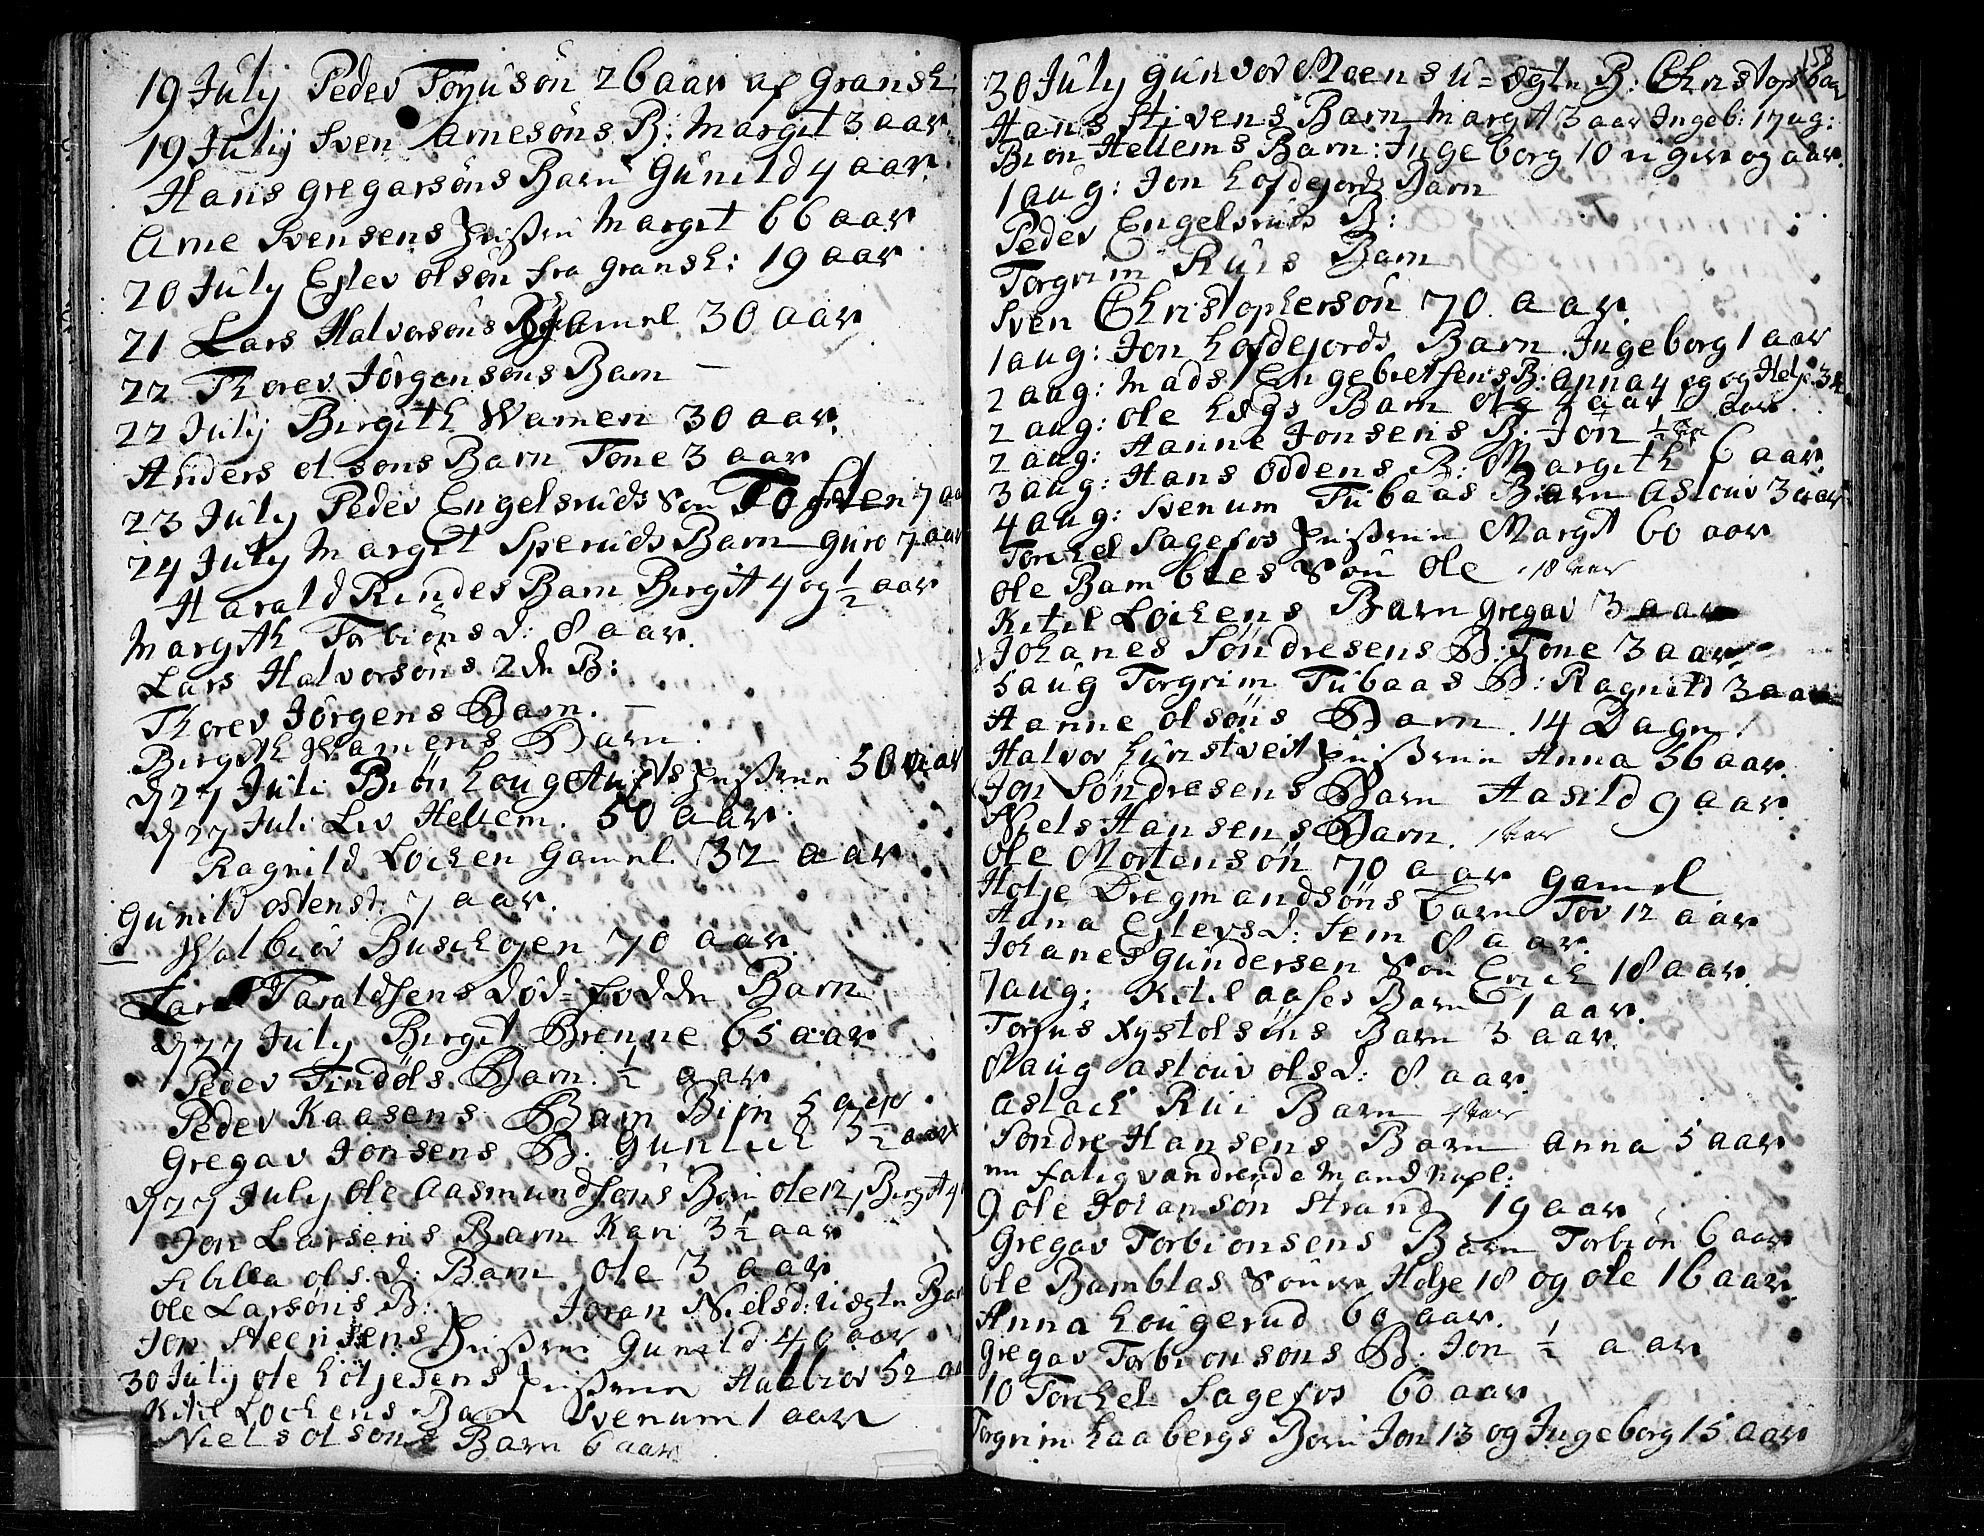 19 July Peder Torjusøn 26 aar af Gransh:
19 July Sven Arnesøns B: Margit 3 aar
Hans Gregarsøns Barn Gunild 4 aar.
Arne Svensens Hustru Margit 66 aar
20 July Eslev olsøn fra Gransh: 19 aar
21 Lars Halvorsøns gamel 30 aar
22 Thorer Jørgensøns Barn —
22 July Birgith Wamen 30 aar.
Anders olsøns Barn Tone 3 aar
23 July Peder Engelsruds Søn Tosten 7 aar
24 July Margit Speruds Barn Guro 7 aar
Harald Rindes Barn Birgit 4 og ½ aar
Margith Torbiøns d: 8 aar.
Lars Halvorsøns 2de B:
Thorer Jørgens Barn. —
Birgith Wamens Barn.
d 27 Juli Biøn Hustru 30 aar
d 27 Juli Liv Hellem. 50 aar.
Ragnild Løchen Gamel 32 aar
Gunild ostenst: 7 aar.
— Walbiør Buschojen 70 aar.
Taraldsens død-fødde Barn
d 27 July Birgit Brenne 65 aar
Peder Tindøls Barn. ½ aar
Peder Kaasens Barn Biøn 5 aar
Gregar Jonsens B. Gunlich 3½ aar
d 27 July Ole Aasmundsøns Børn ole 12, Birgit 4
Jon Larsens Barn Kari 3½ aar
Sibilla ols. d: Barn ole 3 aar.
Ole Larsøns B: Joran Nielsd: uegte Bar
Jon Steensens Hustru Gunild 40 aar
30 July ole Høljesens Hustru Halbior 52 aa
Kitil Lochens Barn Svenum 1 aar
Niels olsøns Barn 6 aar
158
30 July Gunvor Moens u-egte B: Christop 6 aar
Hans Stivens Barn Margit 3 aar Ingeb: 17 ug:
Biøn Hellems Barn: Ingeborg 10 uger og aar.
1 aug: Jon Lofdejords Barn
Peder Engelsruds B:
Torgrim Ruis Barn
Sven Christophersøn 70 aar.
1 aug: Jon Lofdejords Barn Ingeborg 1 aar
2 aug: Mads Engebretsens B: Anna 4 og Helje 3
2 aug: Ole Barn 4 aar
2 aug: Hanne Jonsens B: Jon ½ aar
3 aug: Hans Oddens B: Margith 6 aar.
4 aug: Svenum Tubaas Barn Aslouv 3 aar
Torchel Sagefos Hustru Margit 60 aar
Ole Bambles Søn Ole 18 aar
Kitil Løchens Barn Gregar 3 aar
Johanes Søndresens B: Tone 3 aar
5 aug Torgrim Tubaas B: Ragnild 3 aar
Hanne olsøns Barn. 14 Dage
Halvor Lunstveit Hustru Anna 36 aar.
Jon Søndresens Barn Aasild 9 aar.
Niels Hansens Barn. 1 aar
Ole Mortensøn 70 aar Gamel
Holje Dregmandsøns barn Tov 12 aar
Anna Eslevs d: Sem 8 aar.
Johanes Gundersen Søn Erich 18 aar.
7 aug: Kitil aases Barn 1 aar.
Torjus Xystolsøns Barn 3 aar.
8 aug aslouv ols d: 8 aar.
Aslach Rui Barn 1 aar
Søndre Hansens Barn Anna 5 aar
en fatig vandrende Mand
9 Ole Johansøn Strand 19 aar
Gregar Torbionsens Barn Torbiøn 6 aar
Ole Bambles Søner Holje 18 og ole 16 aar.
Anna Lougerud 60 aar.
Gregar Torbionsøns B. Jon ½ aar
10 Torchel Sagefos 60 aar
Torgrim Laabergs Børn Jon 13 og Ingeborg 15 aar